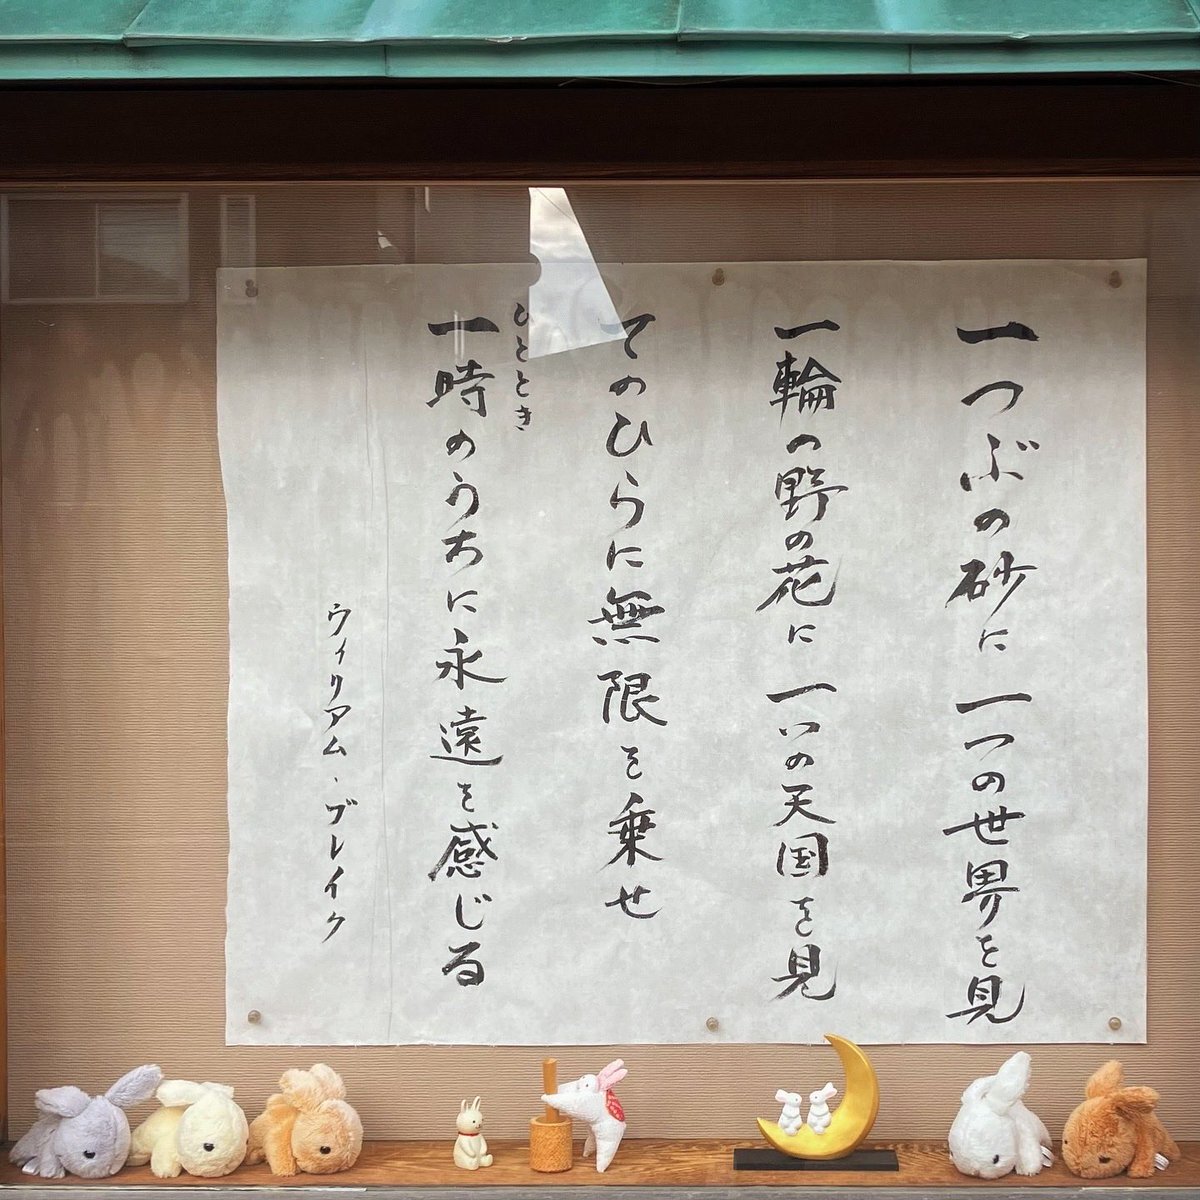 一つぶの砂に一つの世界を見
一輪の野の花に一つの天国を見
てのひらに無限を乗せ
ひととき
一時のうちに永遠を感じる
ウィリアム・ブレイク